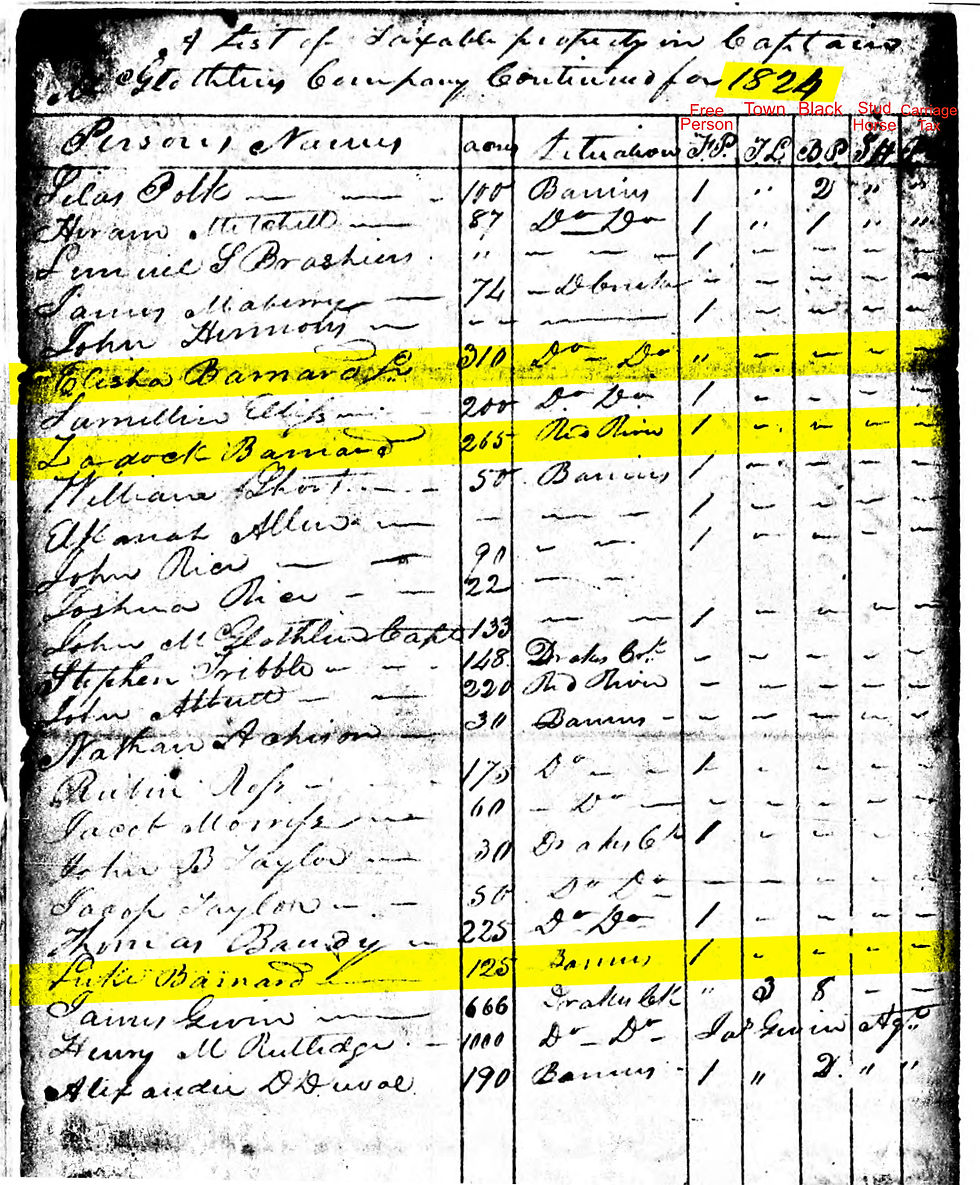 A List of Taxable property in Captain
Mc Glothlins Company Continued for 1824
Free Person Town Black Stud Horse Carriage Tax
Persons Names acres Situation F.P. T L B P S H
Silas Polk — — - 100 Barrins 1 " 2 " "
Hiram Mitchell — 87 Do Do 1 " 1 " "
Lemuel S Brashiers . " - - - 1 - - - -
James Maberry — 74 - D Creek - - - - -
John Simmons — - - — 1 - - - -
Elisha Barnard Sr 310 Do - Do " - - - -
Ellis - - 200 Do Do 1 - - - -
Zadock Barnard 265 Red River 1 - - - -
William Short - - 50 Barrins 1 - - - -
Elkanah Allen - — - — - 1 - - - -
John Rice — — 90 - - 1 - - - -
Joshua Rice - - 22 - - - - - -
John McGlothlin Capt 133 — - 1 - - - -
Stephen Tribble - - - 148 Drakes Crk - - - - -
John - — 220 Red River - - - - -
Nathan Achison — 30 Barrins - - - - - -
Rubin Ross - - 175 Do - - 1 - - - -
Jacob Morriss - 60 - Do — - - - - -
John B Taylor — 30 Drakes Ck 1 - - - -
Jacop Taylor - - 50 Do Do — - - - -
Thomas Bandy - 225 Do - Do 1 - - - -
Luke Barnard — 125 Barrins 1 - - - -
James Gwin — 666 Drakes Ck " 3 8 - -
Henry M Rutledge - 1000 Do - Do - Jas Gwin Agt
Alexander D Duval 190 Barrins - 1 " 2 " "